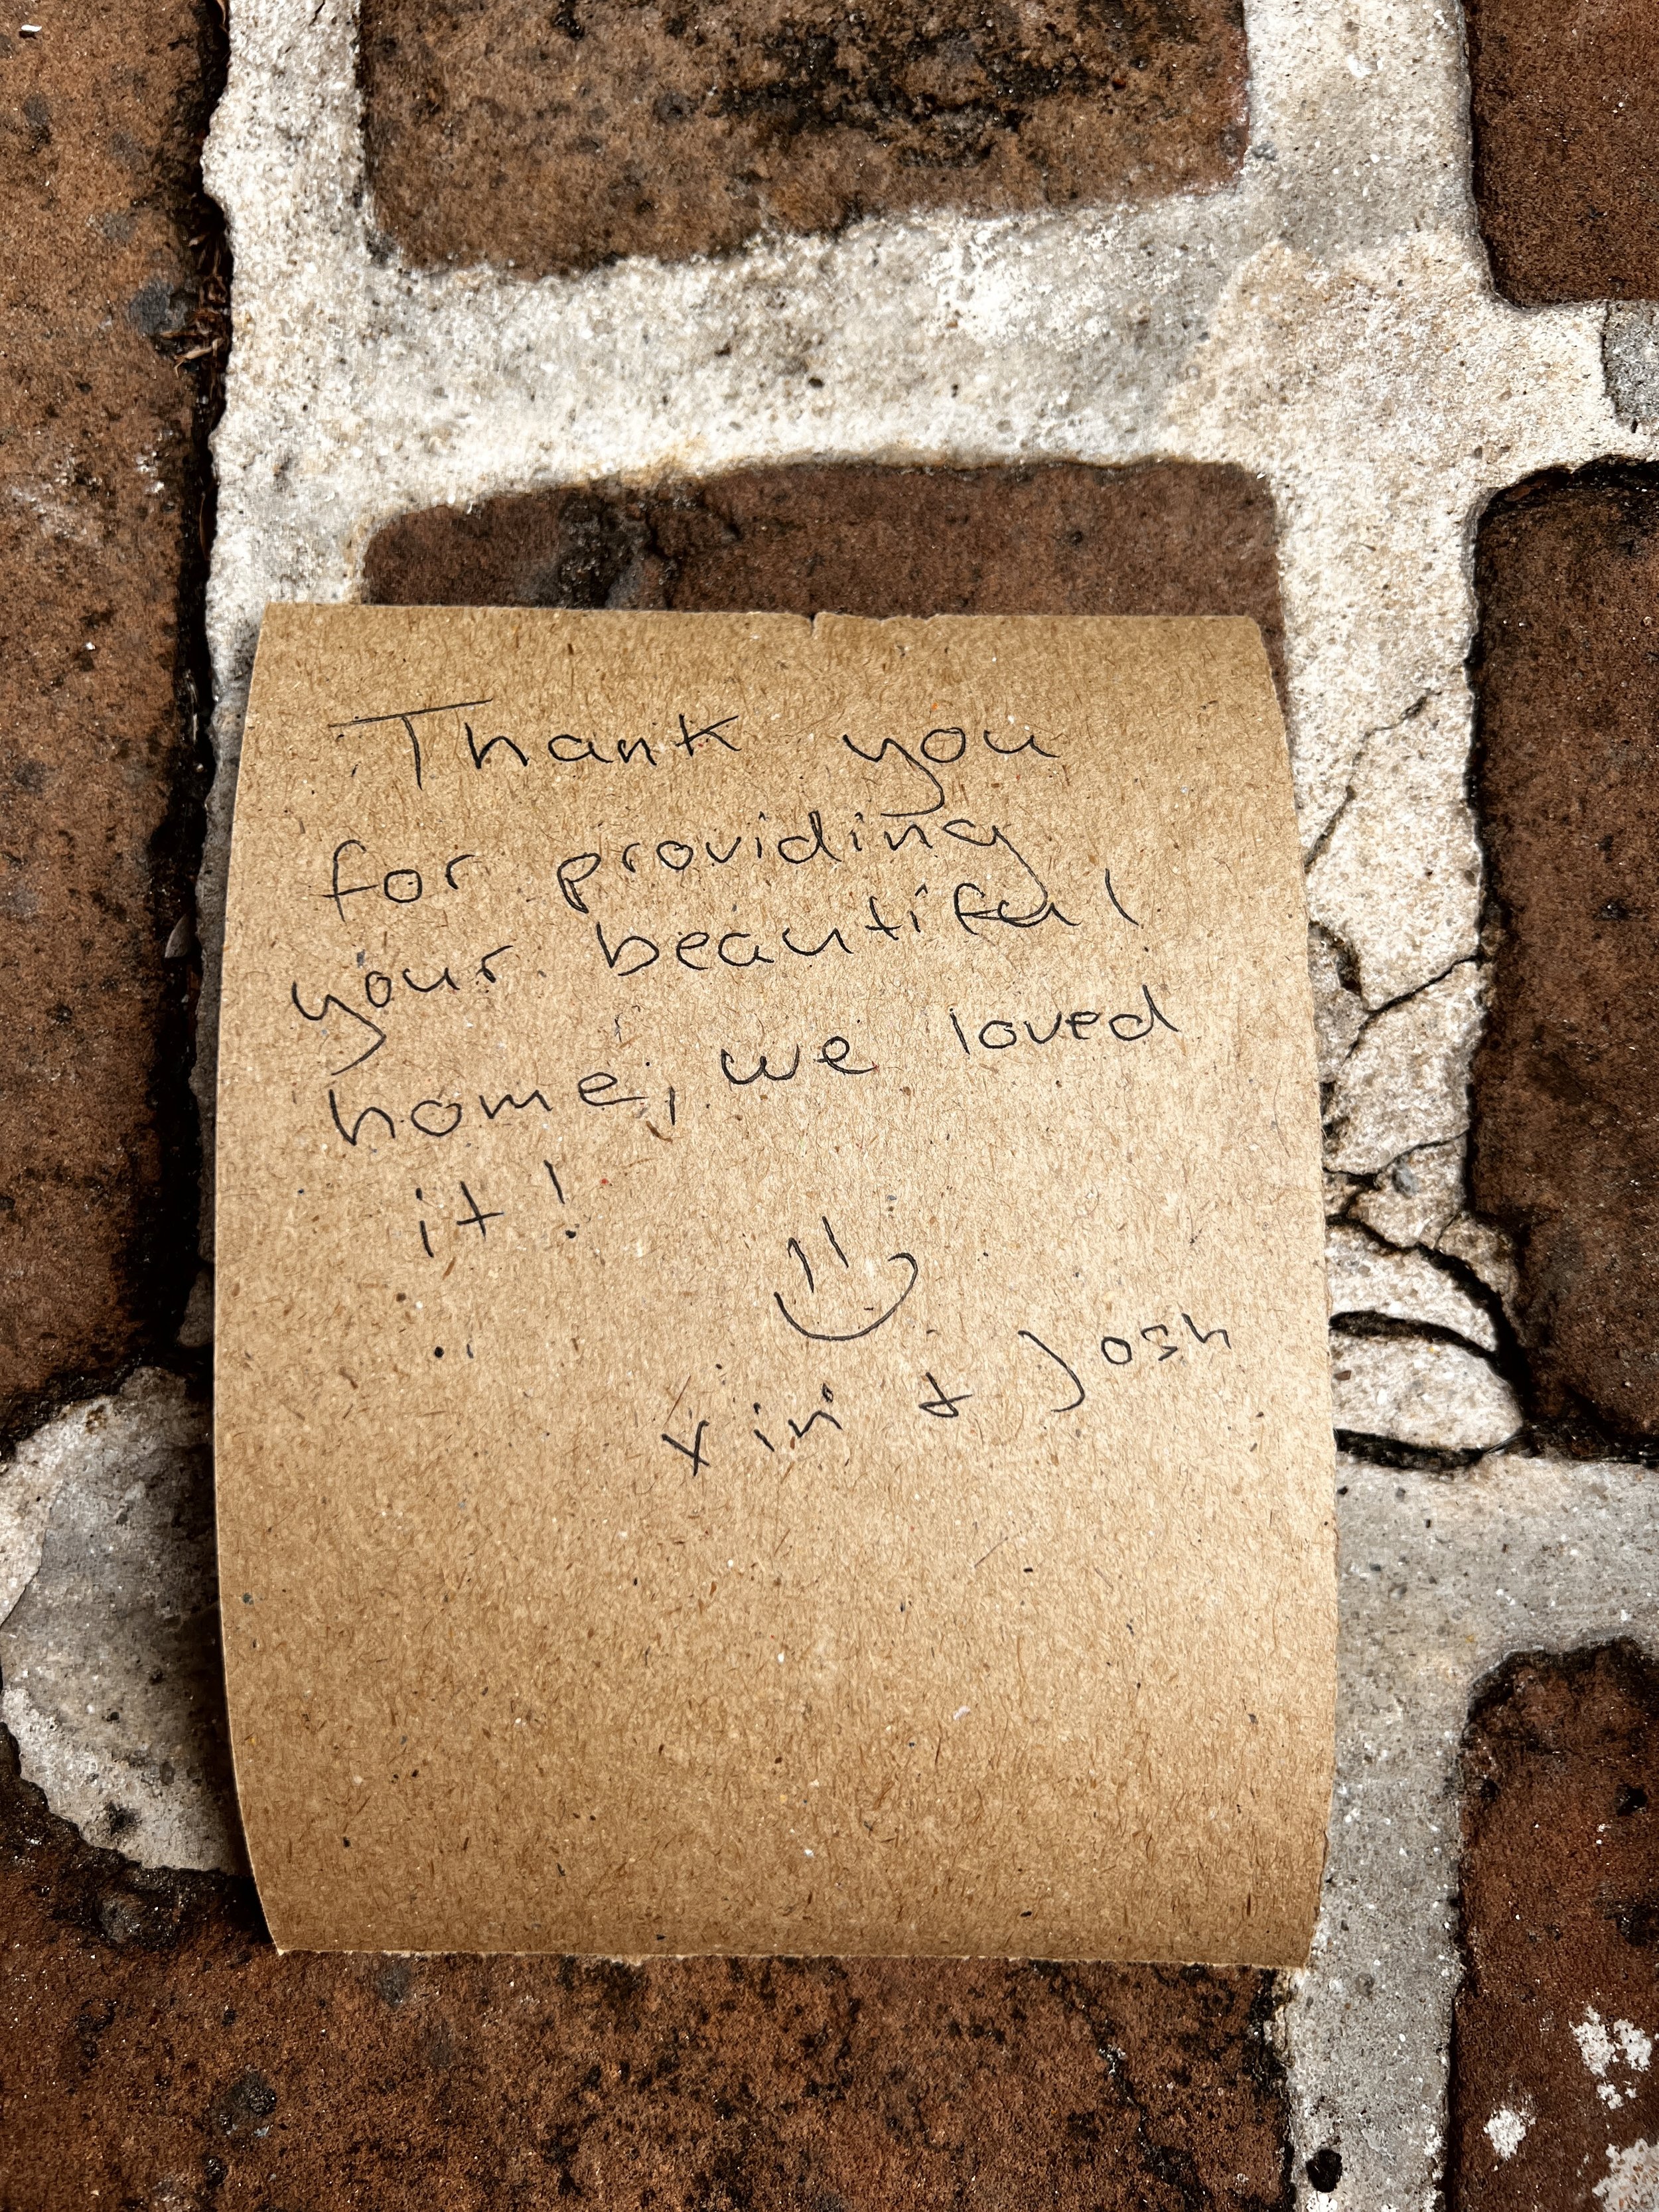 Thank you
for providing
your beautiful
home, we loved
it!
Xin + Josh